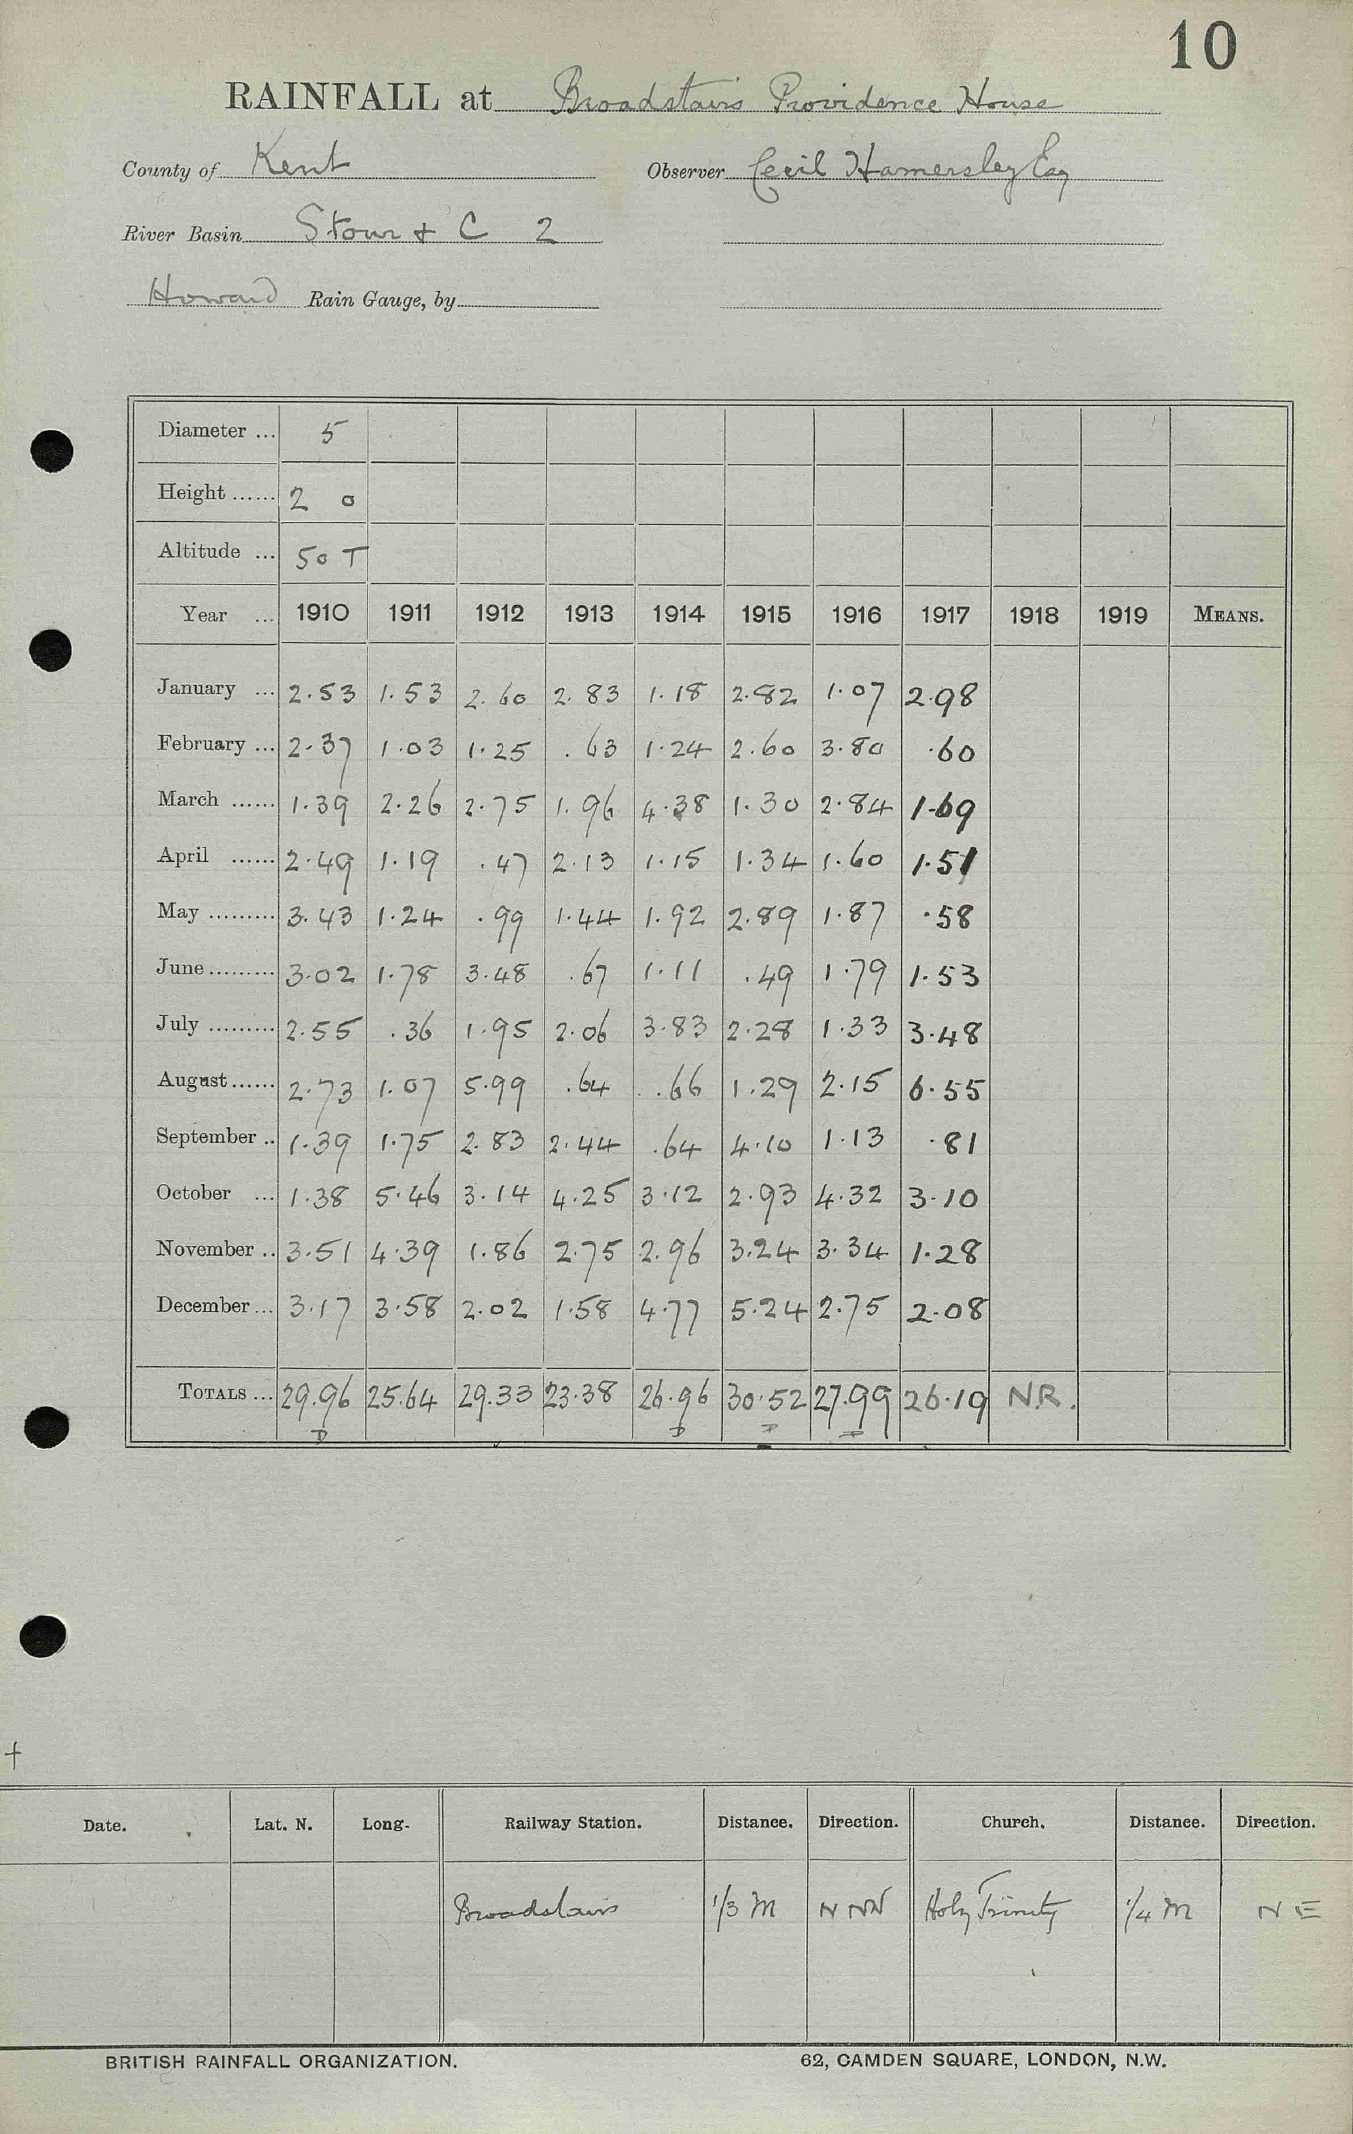 10
RAINFALL at Broadstairs Providence House
County of Kent Observer Cecil Hamersley Esq
River Basin Stour & C 2
Howard Rain Gauge, by
Diameter ... 5
Height ...... 2 0
Altitude ... 50 T
Year ... 1910 1911 1912 1913 1914 1915 1916 1917 1918 1919 MEANS.
January ... 2.53 1.53 2.60 2.83 1.18 2.82 1.07 2.98
February ... 2.37 1.03 1.25 .63 1.24 2.60 3.80 .60
March ...... 1.39 2.26 2.75 1.96 4.38 1.30 2.84 1.69
April ...... 2.49 1.19 .47 2.13 1.15 1.34 1.60 1.51
May ......... 3.43 1.24 .99 1.44 1.92 2.89 1.87 .58
June ......... 3.02 1.78 3.48 .67 1.11 .49 1.79 1.53
July ......... 2.55 .36 1.95 2.06 3.83 2.28 1.33 3.48
August ...... 2.73 1.07 5.99 .64 .66 1.29 2.15 6.55
September .. 1.39 1.75 2.83 2.44 .64 4.10 1.13 .81
October ... 1.38 5.46 3.14 4.25 3.12 2.93 4.32 3.10
November .. 3.51 4.39 1.86 2.75 2.96 3.24 3.34 1.28
December ... 3.17 3.58 2.02 1.58 4.77 5.24 2.75 2.08
TOTALS ... 29.96 25.64 29.33 23.38 26.96 30.52 27.99 26.19 N.R.
Date. Lat. N. Long. Railway Station. Distance. Direction. Church. Distance. Direction.
Broadstairs 1/3 M N NW Holy Trinity 1/4 M N E
BRITISH RAINFALL ORGANIZATION. 62, CAMDEN SQUARE, LONDON, N.W.